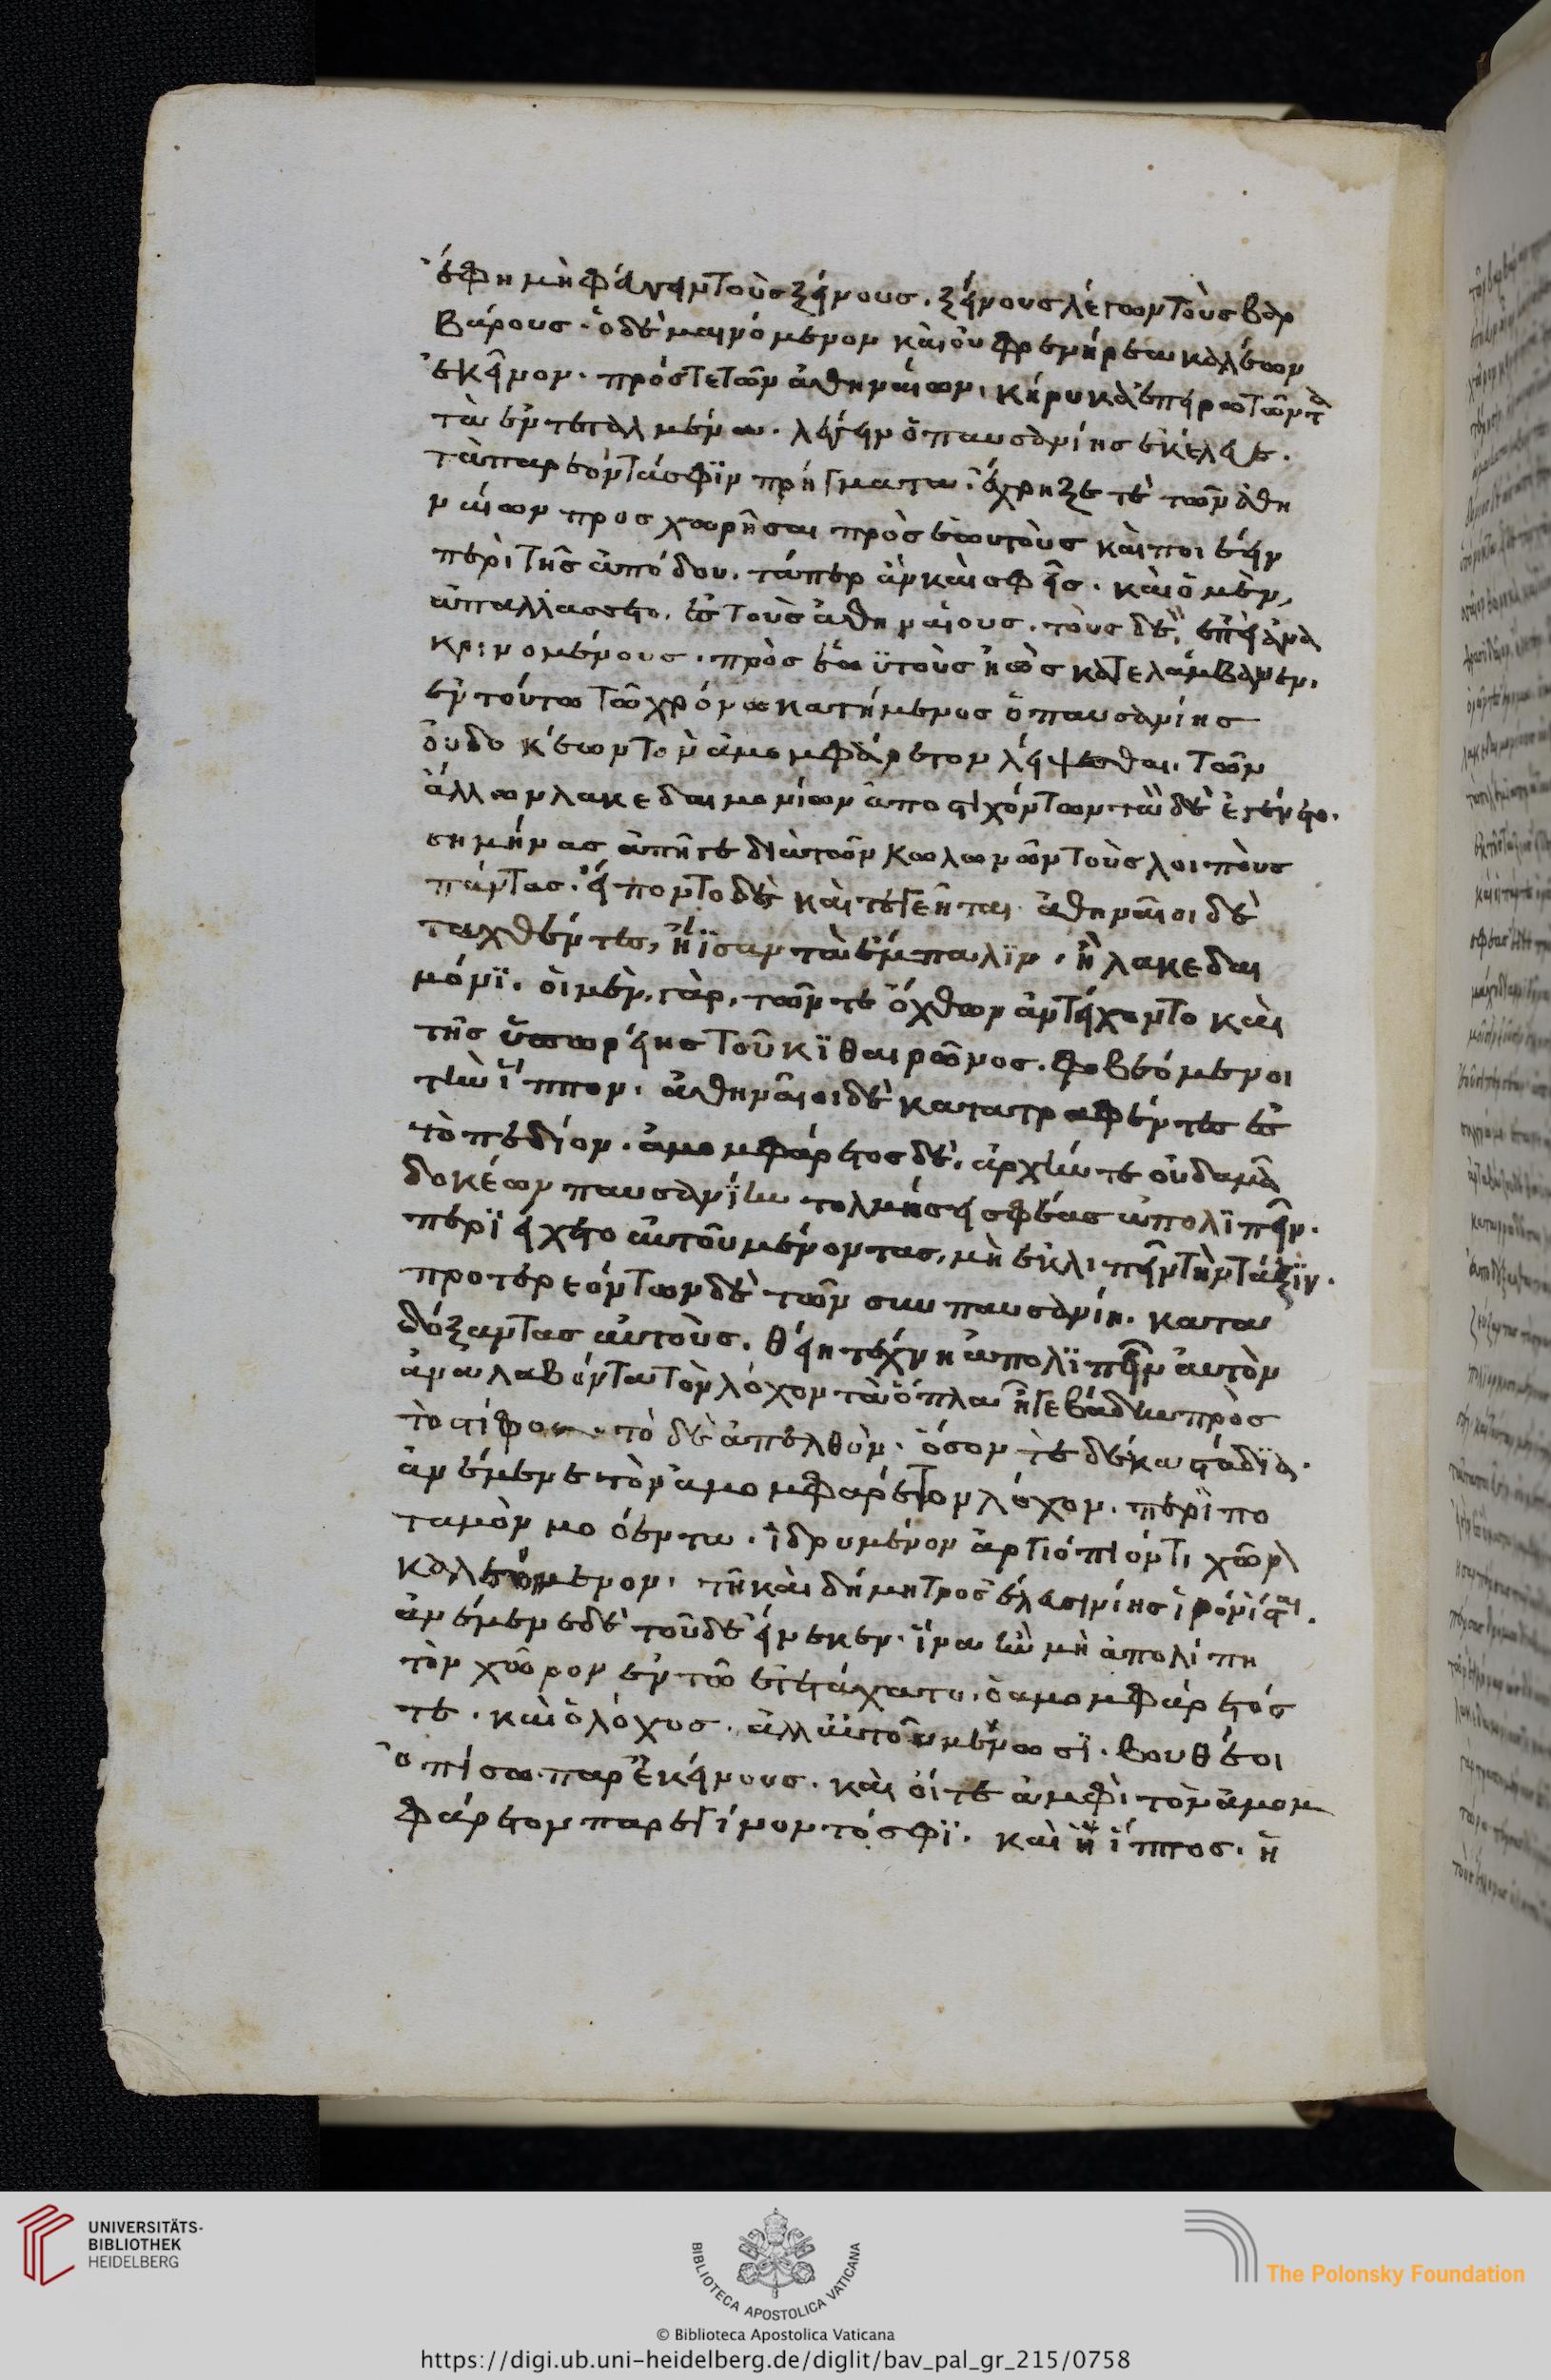 ἔφη μὴ φεύγειν τοὺς ξείνους. ξείνους λέγων τοὺς βαρ
βάρους. ὁ δὲ μαινόμενον καὶ οὐ φρενήρεα καλέων
ἐκεῖνον. πρός τε τῶν ἀθηναίων κήρυκα ἐπειρωτῶντα
τὰ ἐντεταλμένα. λέγειν ὁ παυσανίης ἐκέλευε.
τὰ παρεόντα σφϊν πρήγματα. ἔχρηζέ τε τῶν ἀθη
ναίων προσχωρῆσαι πρὸς ἑωυτοὺς καὶ ποιέειν
περὶ τῆς ἀπόδου. τάπερ ἂν καὶ σφεῖς. καὶ ὁ μὲν,
ἀπαλλάσσετο. ἐς τοὺς ἀθηναίους. τοὺς δὲ, ἐπεὶ ἀνα
κρινομένους. πρὸς ἑωϋτοὺς ἠὼς κατελάμβανεν.
ἐν τούτω τῶ χρόνω κατήμενος ὁ παυσανίης
οὐ δοκέων τὸν ἀμομφάρετον λείψεσθαι. τῶν
ἄλλων λακεδαιμονίων ἀποστιχόντων τὰ δὲ ἐγένετο.
σημήνας ἀπῆγε διὰ τῶν κωλωνῶν τοὺς λοιποὺς
πάντας. εἵποντο δὲ καὶ τεγεῆται. ἀθηναῖοι δὲ
ταχθέντες, ἤϊσαν τὰ ἔμπαλϊν. ἢ λακεδαι
μόνϊ. οἱ μὲν, γὰρ, τῶν τε ὄχθων ἀντείχοντο καὶ
τῆς ὑπωρείης τοῦ κϊθαιρῶνος. φοβεόμενοι
τὴν ἵππον. ἀθηναῖοι δὲ κατατραφέντες ἐς
τὸ πεδίον. ἀμομφάρετος δὲ. ἀρχήν τε οὐδαμᾶ
δοκέων παυσανίην τολμήσει σφέας ἀπολϊπεῖν.
περϊείχετο αὐτοῦ μένοντας, μὴ ἐκλιπεῖν τὴν τάξϊν.
προτερεόντων δὲ τῶν συν παυσανίη. κατα
δόξαντας αὐτοὺς. θείη τέχνη ἀπολϊπεῖν αὐτὸν
ἀναλαβόντα τὸν λόχον τὰ ὅπλα ἦγε βάδην πρὸς
τὸ στίφος. τὸ δὲ ἀπελθὸν. ὅσον τε δέκα στάδϊα.
ἀνέμενε τὸν ἀμομφαρέτον λόχον. περὶ πο
ταμὸν μολόεντα. ἱδρυμένον ἀργιόπιόν τι χῶρα
καλεόμενον. τῆ καὶ δήμητρος ἐλευσινίης ἱρόν ἧσται.
ἀνέμενε δὲ τοῦδε εἵνεκεν. ἵνα ἢν μὴ ἀπολίπη
τὸν χῶρον ἐν τῶ ἐτετάχατο. ὁ ἀμομφάρετός
τε. καὶ ὁ λόχος. ἀλλ αὐτοῦ μένωσϊ. βουθέοι
ὀπίσω παρ ἐκείνους. καὶ οἵ τε ἀμφὶ τὸν ἀμομ
φάρετον παρεγίνοντό σφϊ. καὶ ἡ ἵππος. ἡ
UNIVERSITÄTS-
BIBLIOTHEK
HEIDELBERG
BIBLIOTECA APOSTOLICA VATICANA
The Polonsky Foundation
© Biblioteca Apostolica Vaticana
https://digi.ub.uni-heidelberg.de/diglit/bav_pal_gr_215/0758